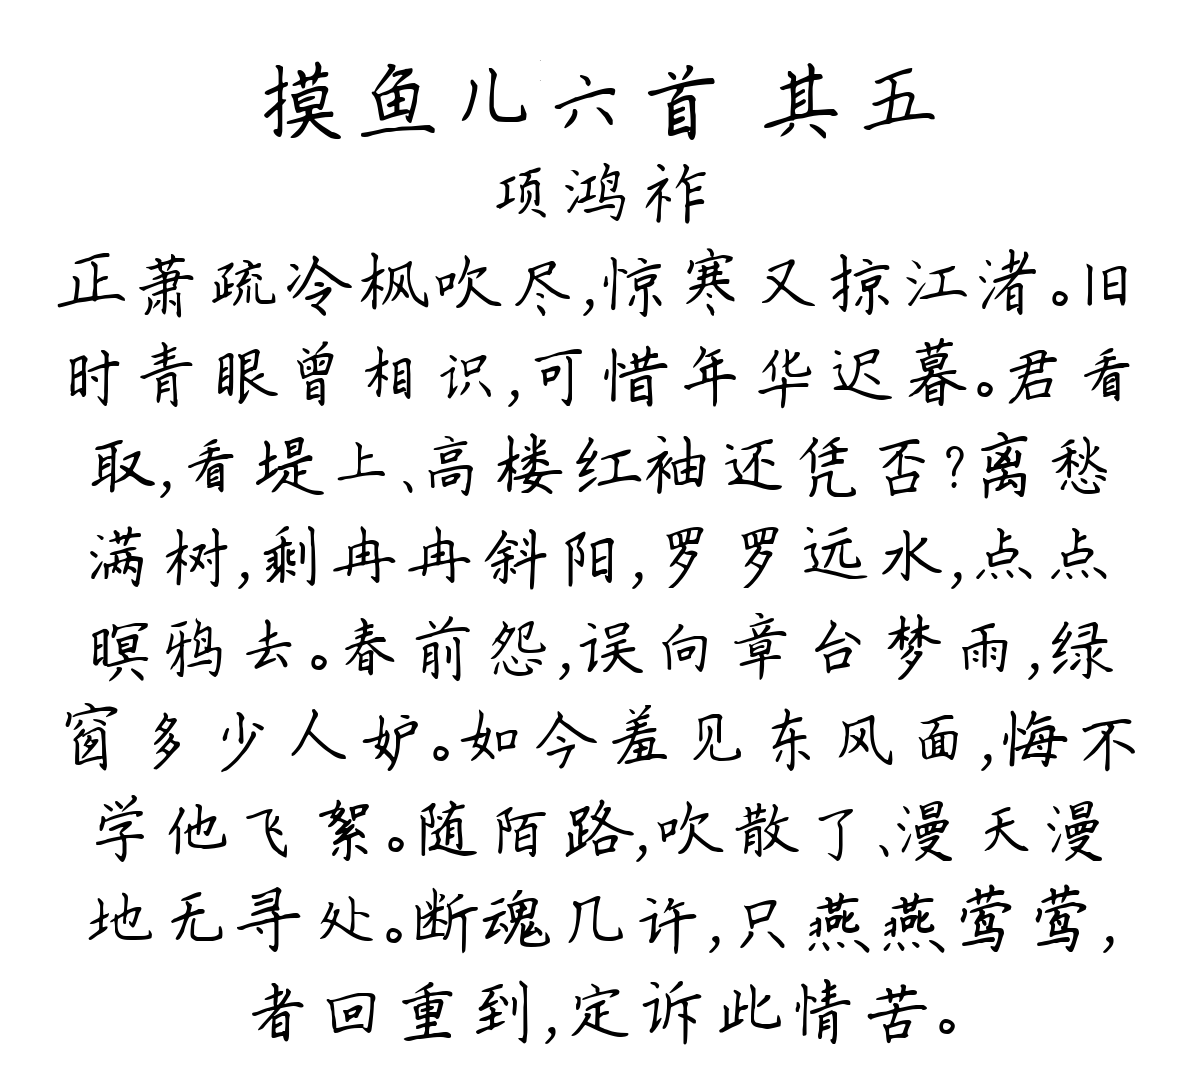 摸鱼儿六首 其五
项鸿祚
正萧疏冷枫吹尽,惊寒又掠江渚。旧
时青眼曾相识,可惜年华迟暮。君看
取,看堤上、高楼红袖还凭否?离愁
满树,剩冉冉斜阳,罗罗远水,点点
暝鸦去。春前怨,误向章台梦雨,绿
窗多少人妒。如今羞见东风面,悔不
学他飞絮。随陌路,吹散了、漫天漫
地无寻处。断魂几许,只燕燕莺莺,
者回重到,定诉此情苦。